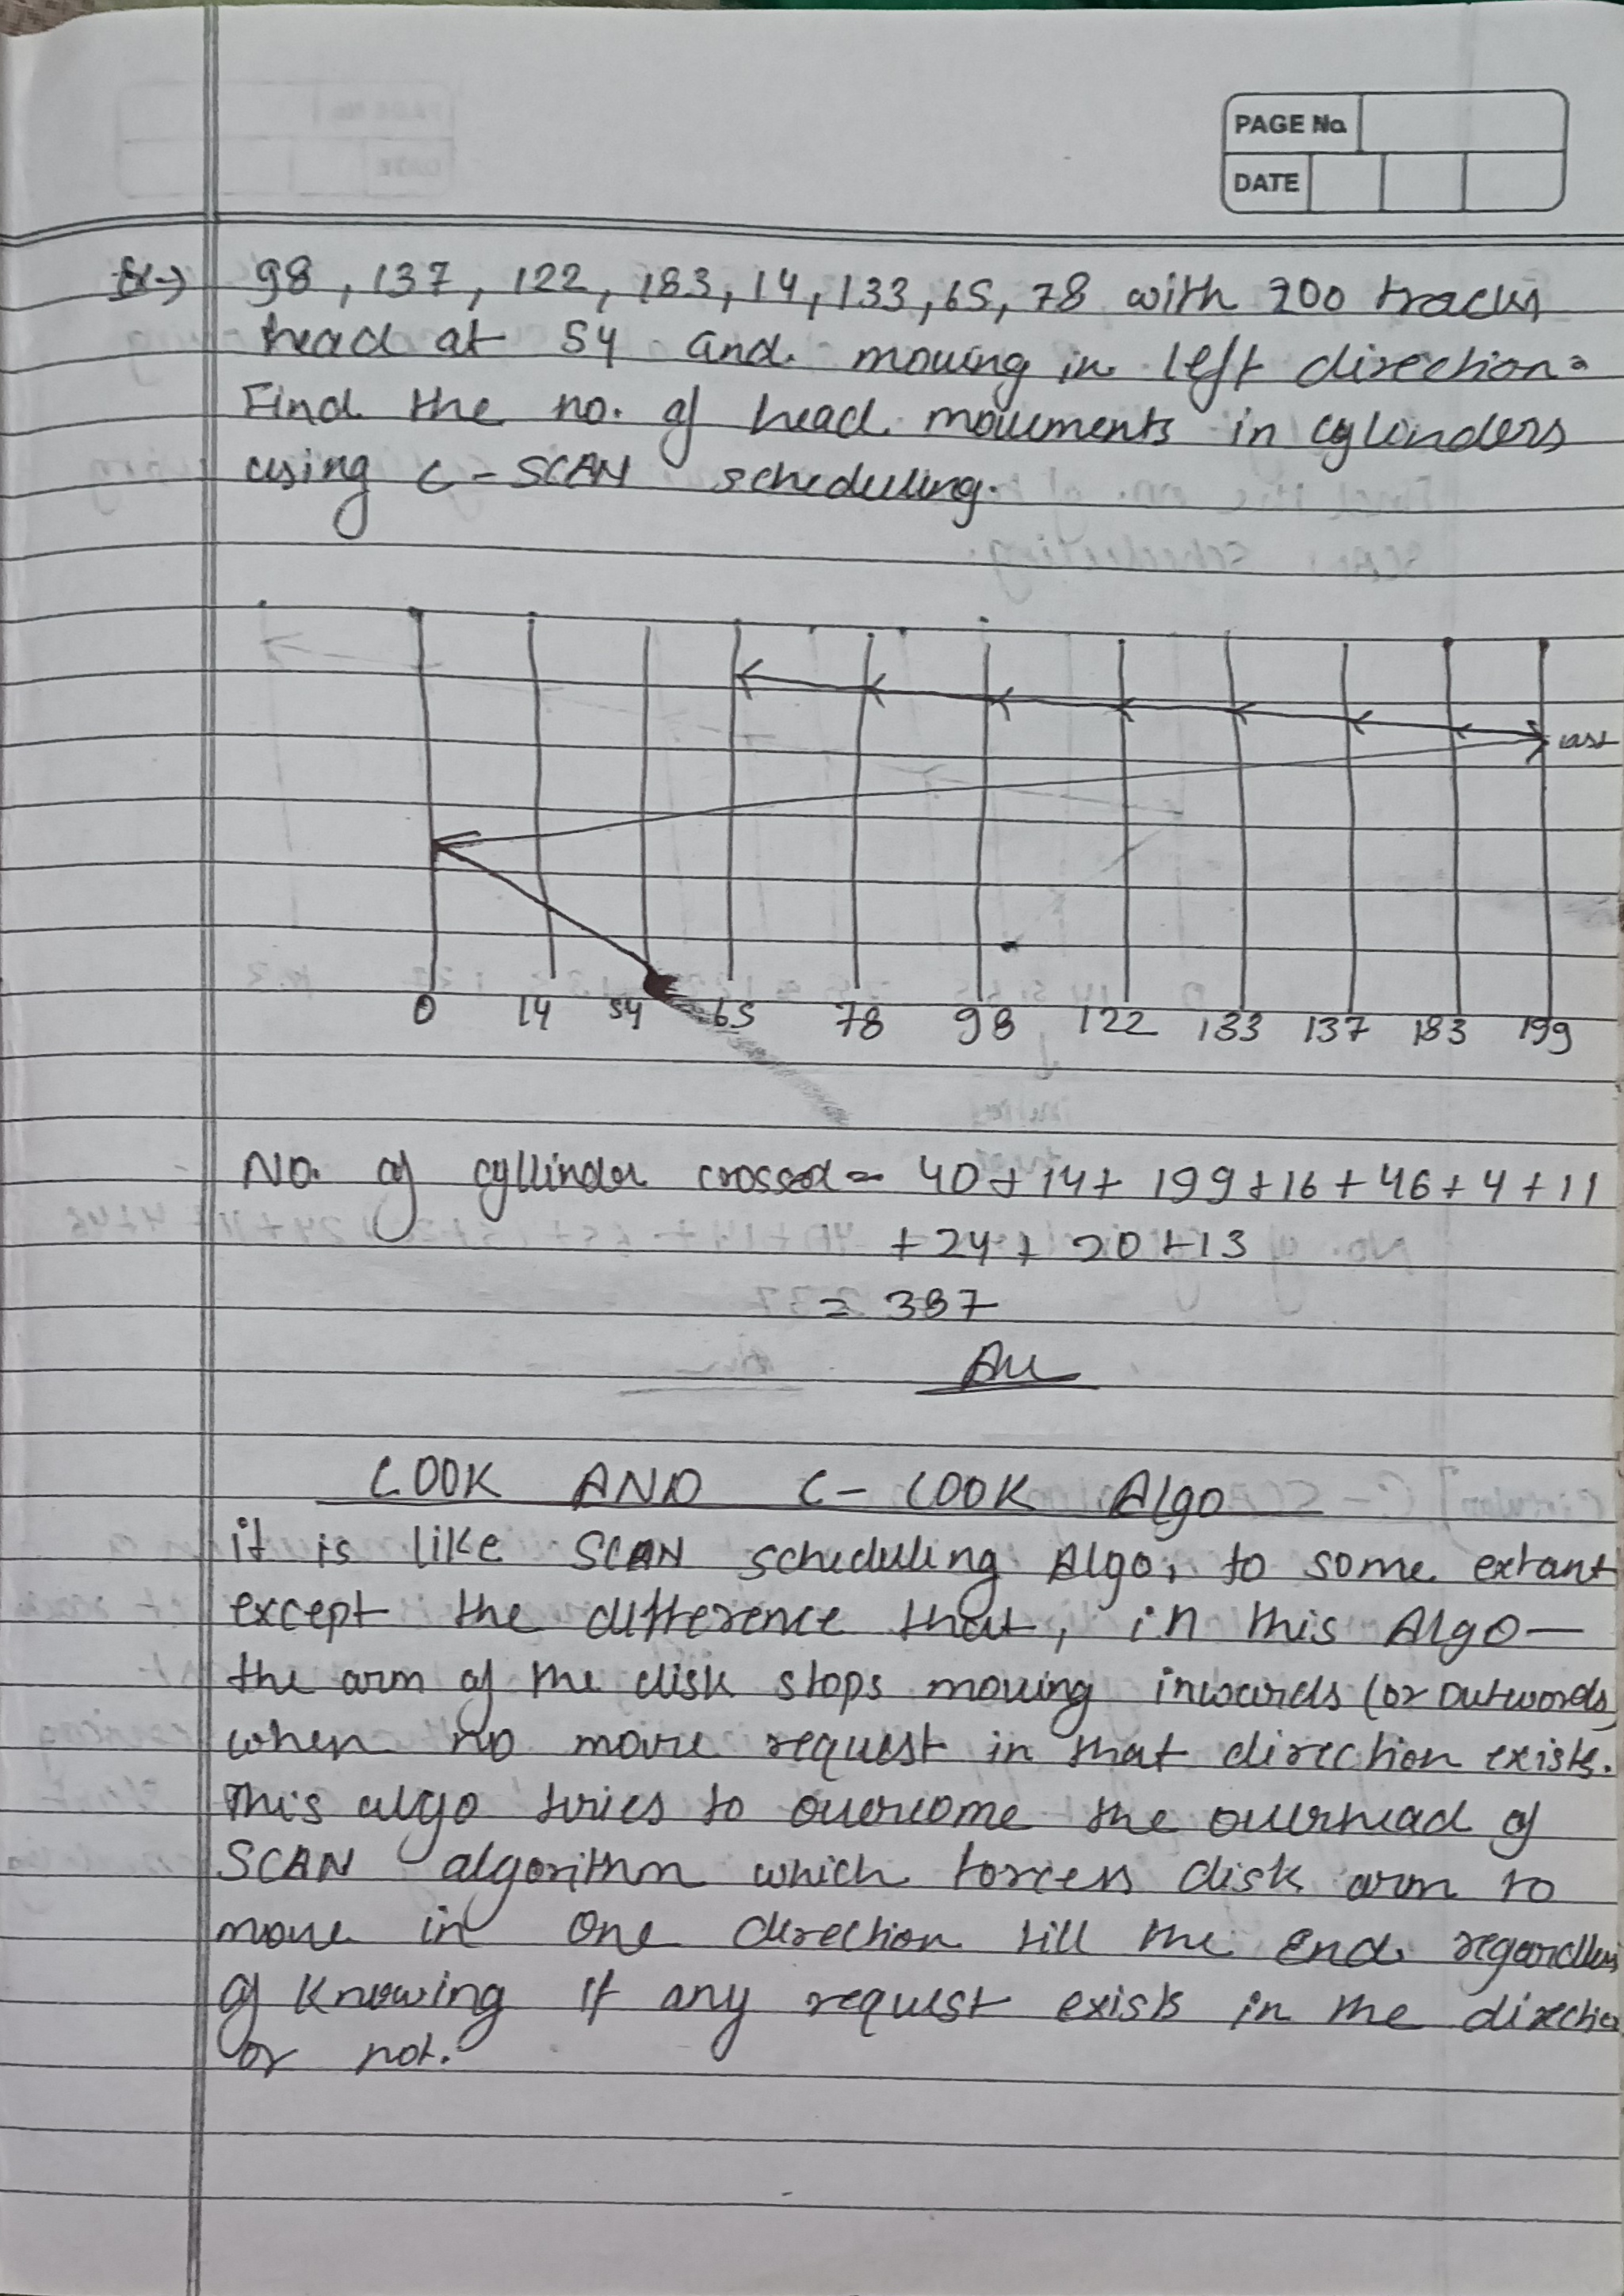 PAGE No
DATE
Ex→ 98, 137, 122, 183, 14, 133, 65, 78 with 200 tracks
head at 54 and moving in left direction.
Find the no. of head movements in cylinders
using C-SCAN scheduling.
last
0 14 54 65 78 98 122 133 137 183 199
No. of cyllinder crossed = 40+14+ 199+16+46+4+11
+24+ 20+13
= 387
Ans
LOOK AND C-LOOK Algo
it is like SCAN scheduling Algo, to some extant
except the difference that, in this Algo—
the arm of the disk stops moving inwards (or outwords)
when no more request in that direction exists.
This algo tries to overcome the overhead of
SCAN algorithm which forces disk arm to
move in one direction till the end regardless
of knowing if any request exists in the direction
or not.